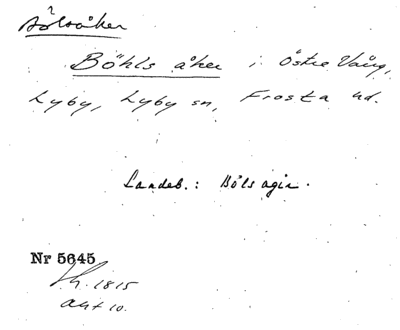 Bölsåker
Böhls åker i Östre Vång,
Lyby, Lyby sn, Frosta hd.
Landeb.: Böls agir.
Nr 5645
Sk. 1815
akt 10.